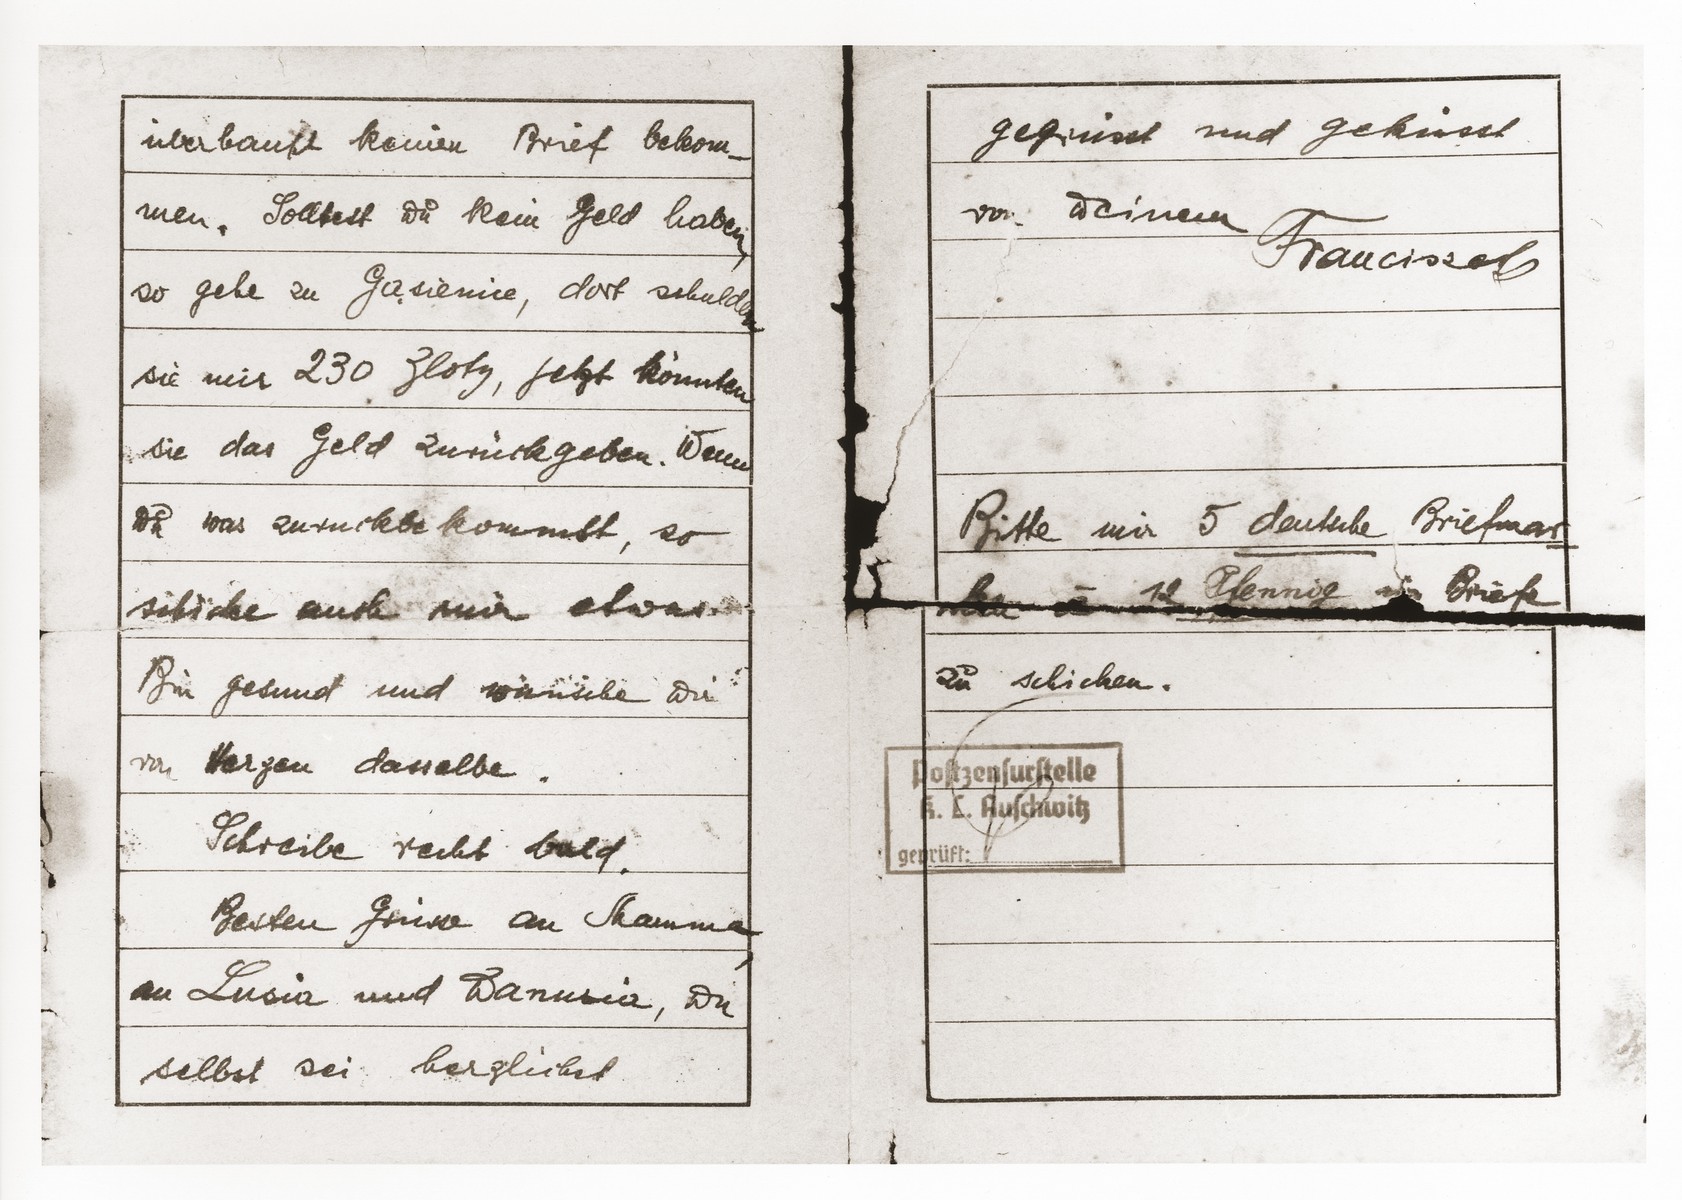 überhaupt keinen Brief bekom-
men. Solltest Du kein Geld haben,
so gehe zu Gąsienice, dort schulden
sie mir 230 Zloty, jetzt könnten
sie das Geld zurückgeben. Wenn
Du was zurückbekommst, so
schicke auch mir etwas.
Bin gesund und wünsche Dir
von Herzen dasselbe.
Schreibe recht bald.
Besten Grüsse an Mamma,
an Lusia und Danusia, Du
selbst sei herzlichst
gegrüsst und geküsst
von Deinem
Franciszek
Bitte mir 5 deutsche Briefmar
ken à 12 Pfennig im Briefe
zu schicken.
Postzensurstelle
K. L. Auschwitz
geprüft: